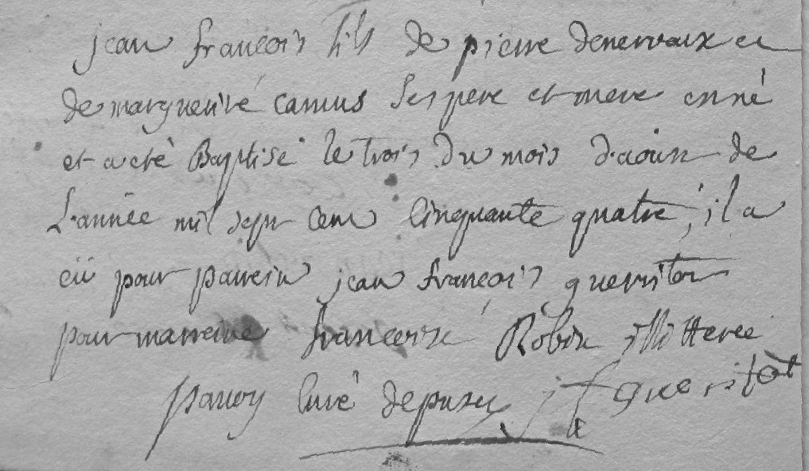 jean françois fils de pierre denervaux et
de marguerite camus ses pere et mere est né
et a eté Baptisé le trois du mois d'aoust de
L'année mil sept cent cinquante quatre, il a
eü pour parrein jean françois queristot
pour marreine francoise Robin illitterée
parroy curé de pusey j f queristot